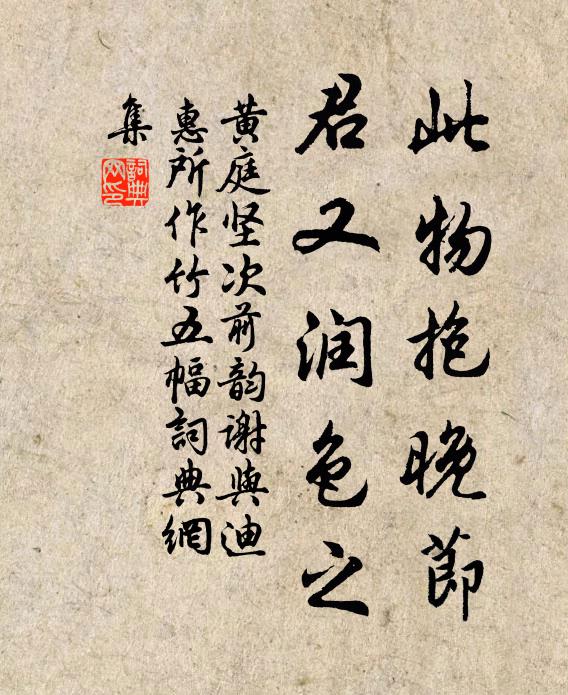 此物抱晚節
君又润色之
黄庭坚次前韵谢與迪
惠所作竹五幅詞典網
集
詞典
网印